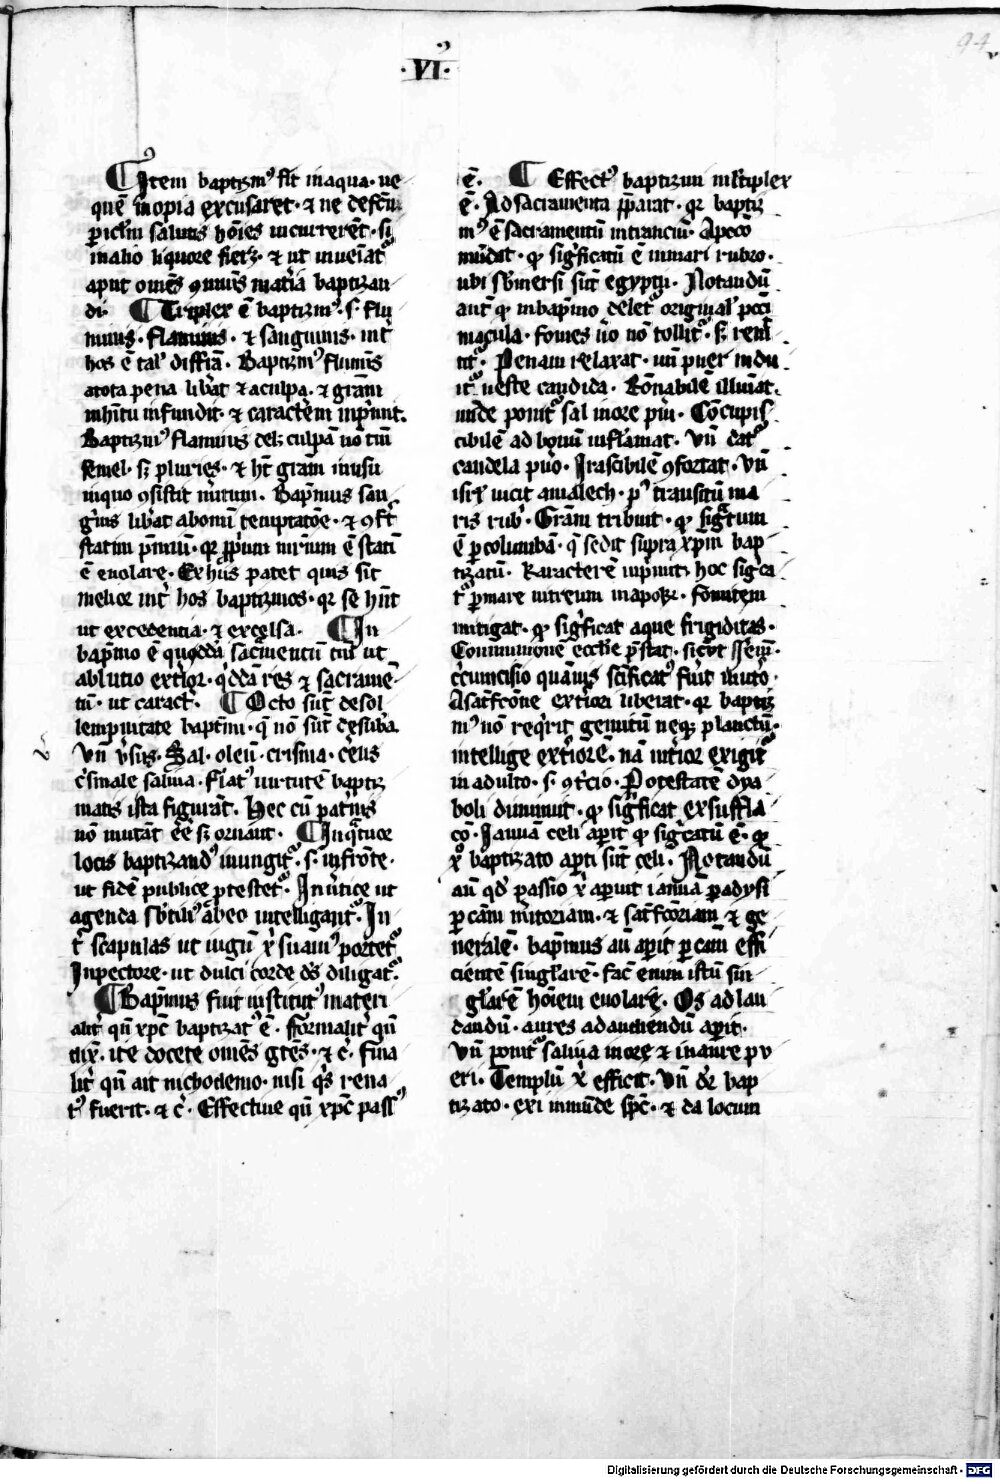 ·VI·
94
¶ Item baptizmꝰ fit in aqua · ne
quē inopia excusaret · ⁊ ne defcū
ꝑiclm̄ salutis hoīes incurrerēt · si
in alio liquore fieret · ⁊ ut inueniat᷑
aput omēs ꝯmunis mat̄ia baptizan
di · ¶ Triplex ē baptizmꝰ · s · flu
minis · flaminis · ⁊ sanguinis · int̄
hos ē tal' diffīa · Baptizmꝰ flumīs
a tota pena lib̄at ⁊ a culpa · ⁊ grām
in hītu infundit · ⁊ caractēm inprimit ·
Baptizmꝰ flaminis del; culpā nō tm̄
semel · s; pluries · ⁊ ht̄ grām in usu
in quo ꝯsistit m̄itum · Bapt̄mus san
gīnis lib̄at ab omī temptatōe · ⁊ ꝯf̄t
statim p̄miū · qr ꝓpum m̄rium ē stati
ē euolare · Ex hiis patet quis sit
melior int̄ hos baptizmos · qr se hn̄t
ut excedentia · ⁊ excelsa · ¶ In
bapt̄mo ē quoddā sac̄mentū tm̄ ut
ablutio ext̄ior · q̄ddā res ⁊ sacramē
tū · ut caract̄ · ¶ Octo sūt de sol
lempnitate bapt̄mi · q̄ nō sūt de subā
Vn̄ v̄sus · Sal · oleū · crisma · cereus
c̄smale saliua · flatꝰ uirtutē baptiz
matis ista figurāt · Hec cū pat̄nis
nō mutāt ēe s; ornant · ¶ In q̄tuor
locis baptizandꝰ inungit᷑ · s · in frōte ·
ut fidē publice ꝓtestet᷑ · In v̄tice ut
agenda sb̄tilꝰ ab eo intelligant᷑ · In
t̄ scapulas ut iugū x̄ suauiꝰ portet᷑
In pectore · ut dulci corde dm̄ diligat᷑ ·
¶ Bapt̄mus fuit institutꝰ materi
alit̄ qn̄ xp̄c baptizatꝰ ē · fformalit̄ qn̄
dix̄ · ite docete omēs gētes · ⁊ c̄ · fina
lit̄ qn̄ ait nichodemo · nisi q̄s rena
tꝰ fuerit · ⁊ c̄ · Effectiue qn̄ xp̄c passꝰ
ē · ¶ Effectꝰ baptizmi ml̄tiplex
ē · Ad sacramenta p̄parat · qr baptiz
mꝰ ē sacramentū intranciū · A peccō
mūdat · qꝫ sig̃ficatū ē in mari rubro ·
ubi sb̄mersi sūt egyptii · Notandū
aut̄ qꝫ in bapt̄mo delet᷑ original' pcc̄i
macula · fomes ūo nō tollit᷑ · s; remit
tit᷑ · Penam relaxat · un̄ puer indu
it᷑ ueste candida · Rōnabilē illuīat ·
unde ponit᷑ sal in ore pūi · Cōcupis
cibilē ad bonū inflāmat · Vn̄ dat᷑
candela pūo · Irascibilē ꝯfortat · Vn̄
isrl' uicit amalech · pꝰ transitū ma
ris rub̄ · Grām tribuit · qꝫ sig̃tum
ē ꝑ columbā · q̄ sedit supra xp̄m bap
tizatū · Karacterē inp̄mit · hoc sig̃ca
t᷑ ꝑ mare uitreum in apok̄ · Fomitem
mitigat · qꝫ sig̃ficat aque frigiditas ·
Communionē eccl'ie p̄stat · sicut
c̄cumcisio quāuis sc̄ificatꝰ fuīt in ut̄o ·
A satisf̄cōne ext̄iori liberat · qr baptiz
mꝰ nō req̄rit gemitū neqꝫ planctū ·
intellige ext̄iorē · nā int̄ior exigit᷑
in adulto · s · ꝯt̄cio · Potestatē dya
boli diminuit · qꝫ sig̃ficat exsuffla
cō · Ianuā celi aꝑit qꝫ sig̃catū ē · qꝫ
x̄o baptizato aꝑti sūt celi · Notandū
aū qd̄ passio x̄ aꝑuit ianuā paradysi
ꝑ cām m̄itoriam · ⁊ satisf̄cōriam ⁊ ge
neralē · bapt̄mus aū aꝑit ꝑ cām effi
cientē singl'arē · fac̄ enim istū sin
gl'arē hoīem euolare · Os ad lau
dandū · aures ad audiendū aꝑit ·
Vn̄ ponit᷑ saliua in ore ⁊ in aure pu
eri · Templū x̄ efficit · Vn̄ dr̄ bap
tizato · exi inmūde sp̄c · ⁊ da locum
Digitalisierung gefördert durch die Deutsche Forschungsgemeinschaft - DFG